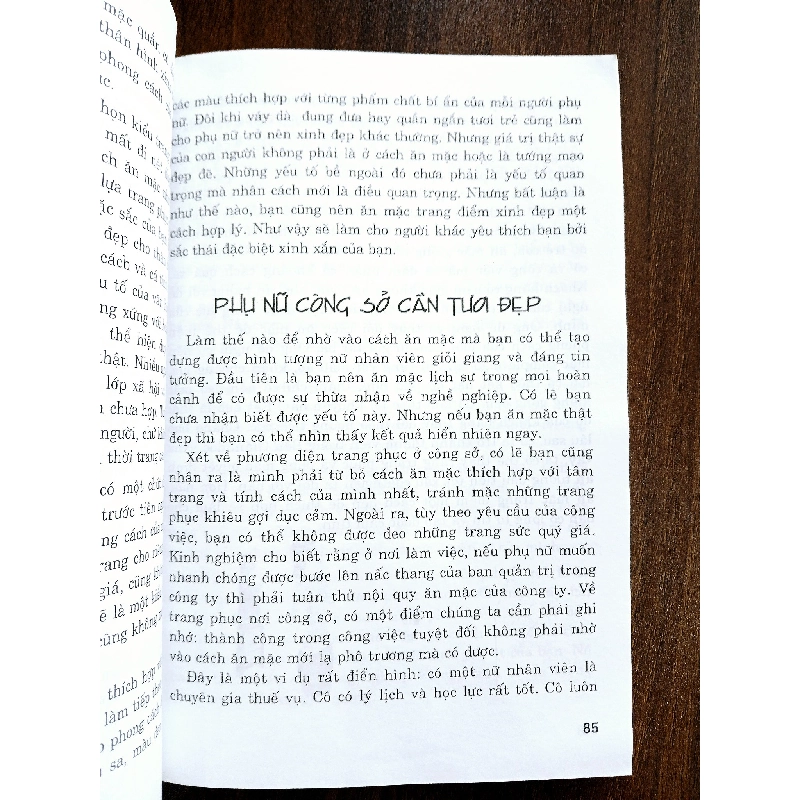 mặc quần
thân hình
phong cách
mất đi
ch ăn mặc
lựa trang
đẹp cho
cách và cá
u tố của
ng xứng với
thể hiện
hật. Nhiều
lớp xã hội
chưa hợp
người, chứ
thời trang
có một
trước tiên
ng cách của
rang cho
giá, cũng
ẽ là một
cũng không
thích hợp
làm tiếp
phong cách
sa, màu
các màu thích hợp với từng phẩm chất bí ẩn của mỗi người phụ
nữ. Đôi khi váy dà đung đưa hay quần ngắn tươi trẻ cũng làm
cho phụ nữ trở nên xinh đẹp khác thường. Nhưng giá trị thật sự
của con người không phải là ở cách ăn mặc hoặc là tướng mạo
đẹp đẽ. Những yếu tố bề ngoài đó chưa phải là yếu tố quan
trọng mà nhân cách mới là điều quan trọng. Nhưng bất luận là
như thế nào, bạn cũng nên ăn mặc trang điểm xinh đẹp một
cách hợp lý. Như vậy sẽ làm cho người khác yêu thích bạn bởi
sắc thái đặc biệt xinh xắn của bạn.
PHỤ NỮ CÔNG SỞ CẦN TƯƠI ĐẸP
Làm thế nào để nhờ vào cách ăn mặc mà bạn có thể tạo
dựng được hình tượng nữ nhân viên giỏi giang và đáng tin
tưởng. Đầu tiên là bạn nên ăn mặc lịch sự trong mọi hoàn
cảnh để có được sự thừa nhận về nghề nghiệp. Có lẽ bạn
chưa nhận biết được yếu tố này. Nhưng nếu bạn ăn mặc thật
đẹp thì bạn có thể nhìn thấy kết quả hiển nhiên ngay.
Xét về phương diện trang phục ở công sở, có lẽ bạn cũng
nhận ra là mình phải từ bỏ cách ăn mặc thích hợp với tâm
trạng và tính cách của mình nhất, tránh mặc những trang
phục khiêu gợi dục cảm. Ngoài ra, tùy theo yêu cầu của công
việc, bạn có thể không được đeo những trang sức quý giá.
Kinh nghiệm cho biết rằng ở nơi làm việc, nếu phụ nữ muốn
nhanh chóng được bước lên nấc thang của ban quản trị trong
công ty thì phải tuân thủ nội quy ăn mặc của công ty. Về
trang phục nơi công sở, có một điểm chúng ta cần phải ghi
nhớ: thành công trong công việc tuyệt đối không phải nhờ
vào cách ăn mặc mới lạ phô trương mà có được.
Đây là một ví dụ rất điển hình: có một nữ nhân viên là
chuyên gia thuế vụ. Cô có lý lịch và học lực rất tốt. Cô luôn
85